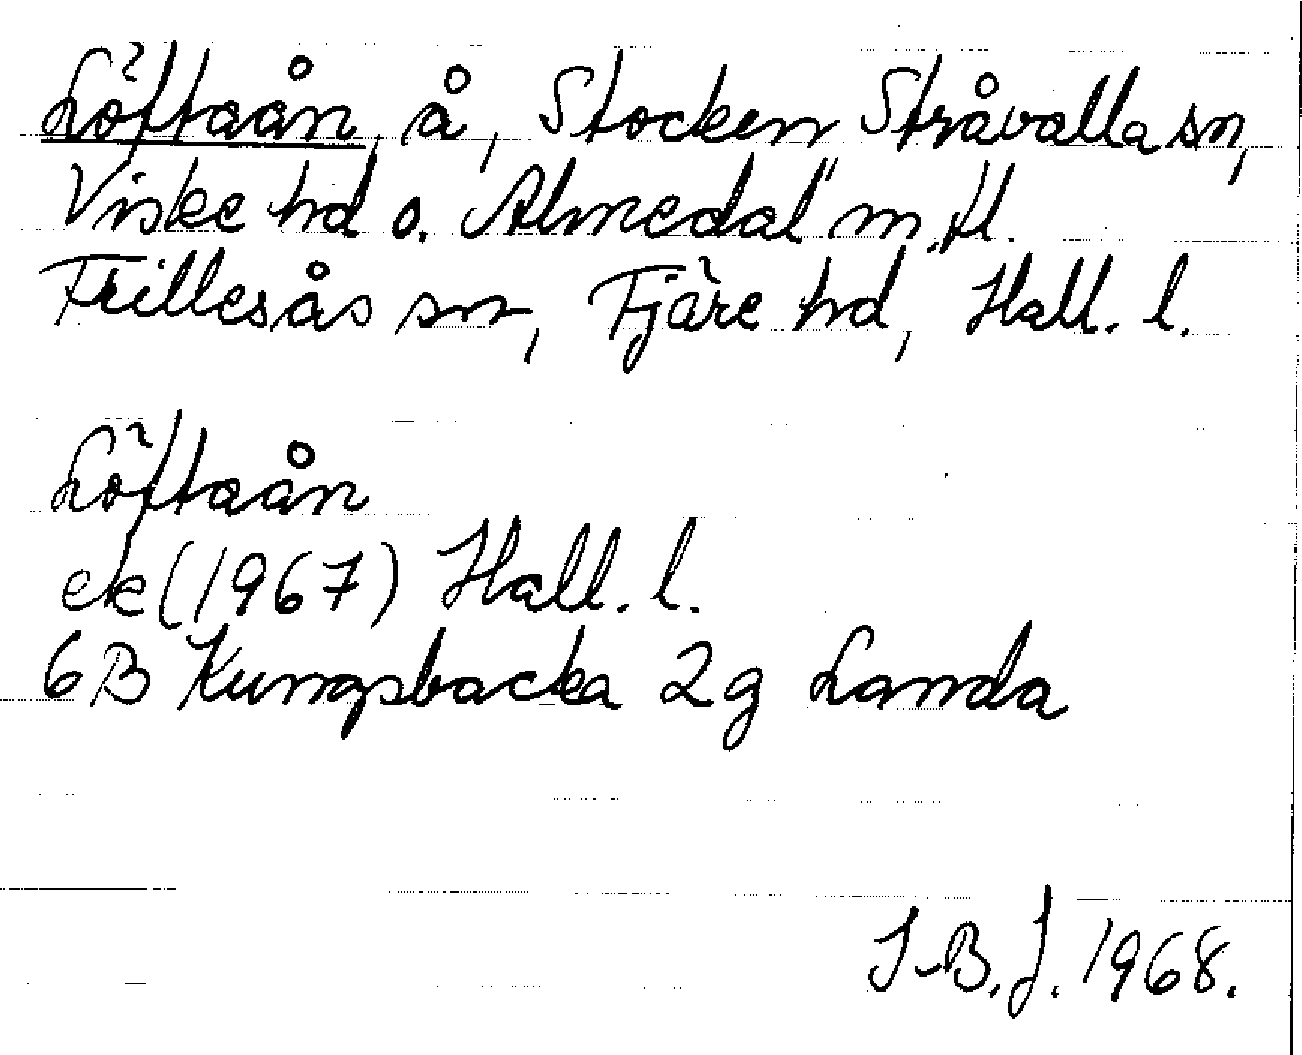 Löftaån, å, Stocken Stråvalla sn,
Viske hd o. Almedal m.fl.
Frillesås sn, Fjäre hd, Hall. l.
Löftaån
ek (1967) Hall. l.
6B Kungsbacka 2g Landa
I-B.J. 1968.